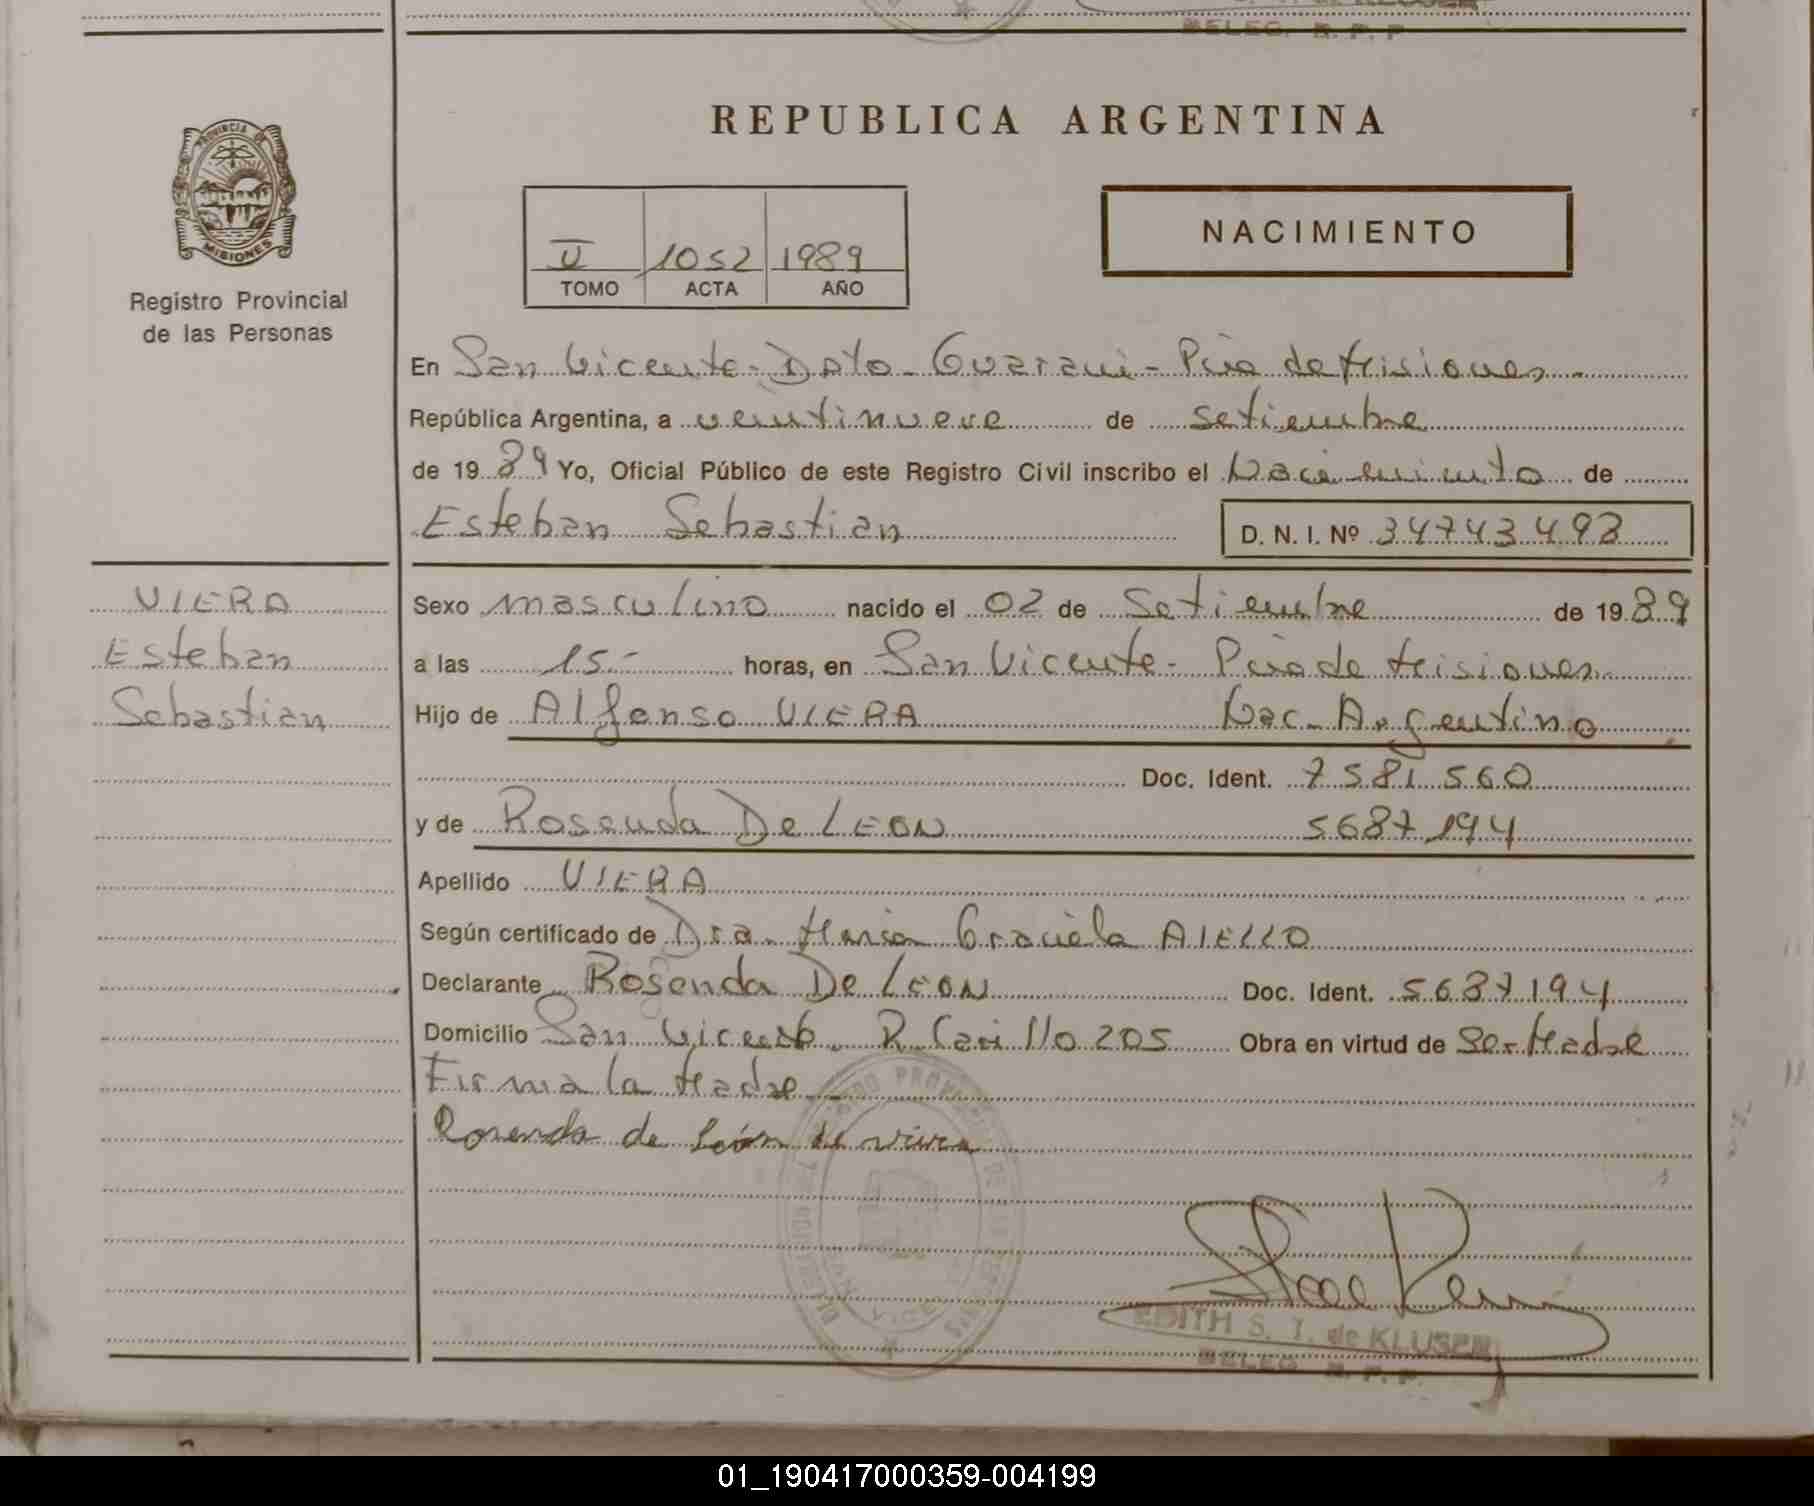 BELEG. R. P. P
PROVINCIA DE
MISIONES
Registro Provincial
de las Personas
REPUBLICA ARGENTINA
II 1052 1989
TOMO ACTA AÑO
NACIMIENTO
En San Vicente - Dpto. Guarani - Pcia de Misiones
República Argentina, a veintinueve de setiembre
de 19 89 Yo, Oficial Público de este Registro Civil inscribo el Nacimiento de
Esteban Sebastian D. N. I. Nº 34743493
VIERA
Esteban
Sebastian
Sexo masculino nacido el 02 de Setiembre de 19 89
a las 15.- horas, en San Vicente - Pcia de Misiones
Hijo de Alfonso VIERA Nac. Argentino
Doc. Ident. 7581560
y de Rosenda De LEON 5687194
Apellido VIERA
Según certificado de Dra. Maria Graciela AIELLO
Declarante Rosenda De LEON Doc. Ident. 5687194
Domicilio San Vicente. R. Carrillo 205 Obra en virtud de Ser Madre
Firma la Madre
Rosenda de León de viera
EDITH S. I. de KLUSER
BELEG. R. P. P.
01_190417000359-004199